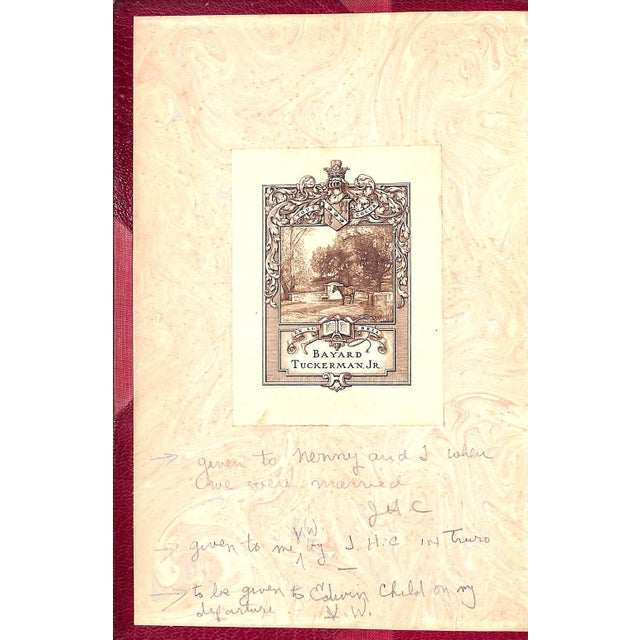 BAYARD
TUCKERMAN, JR
→ given to Nenny and I when
we were married
JHC
V.W.
→ given to me by J.H.C IN Truro
→ to be given to Edwin Child on my
departure. V.W.